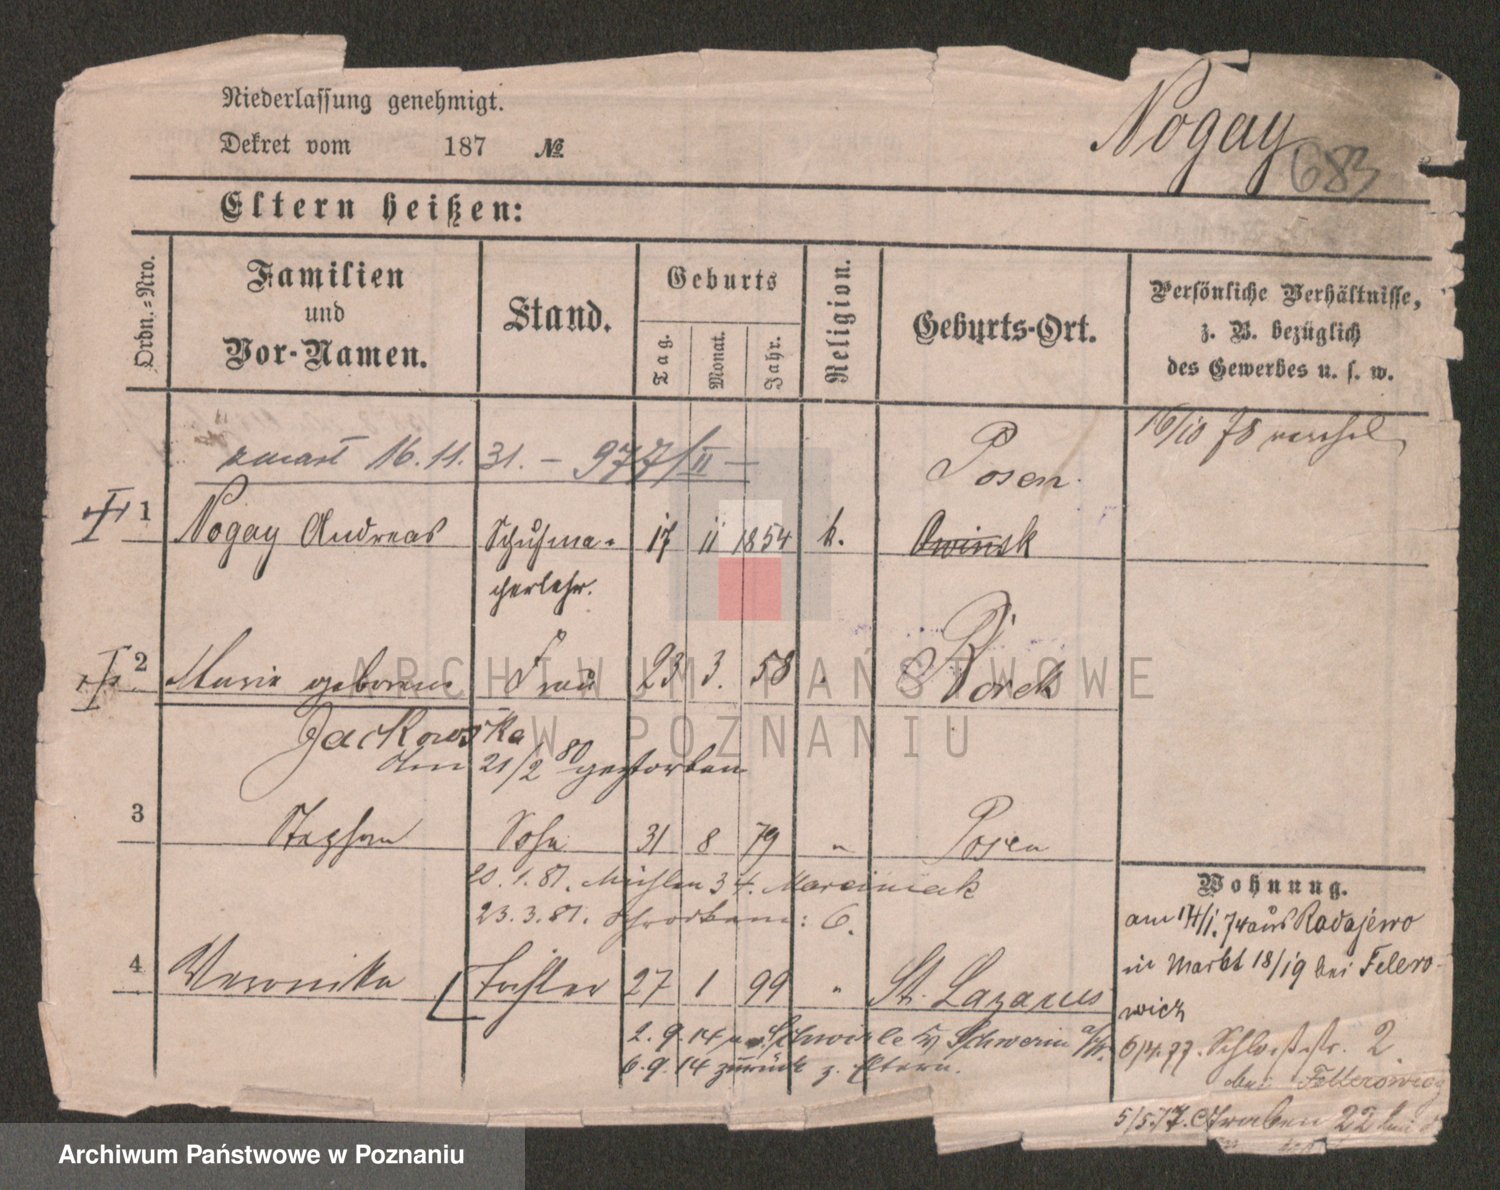 Niederlassung genehmigt.
Dekret vom 187 №
Nogay
683
Eltern heißen:
Ordn.-Nro.
Familien und Vor-Namen.
Stand.
Geburts
Tag.
Monat.
Jahr.
Religion.
Geburts-Ort.
Persönliche Verhältnisse,
z. B. bezüglich
des Gewerbes u. s. w.
16/10 78
zmarł 16.11.31. - 977/II -
Posen.
1 Nogay Andreas Schuhma- 17 11 1854 k. Owinsk
cherlehr.
2 Marie geborene Frau 23 3. 58 Xiorek
Jackowska
am 21/2 80 gestorben
3 Stephan Sohn 31 8 79 " Posen
20.1.81. Mühlen 34. Marciniak
23.3.81. 6.
4 Veronika Tochter 27 1 99 " St. Lazarus
2.9.14 Schwerin a/W.
6.9.14 zurück z. Eltern.
Wohnung.
am 14/1. 74 aus Radajewo
in Markt 18/19 bei Felero-
wicz
6/4.77. Schloßstr. 2.
bei Fellerowicz
5/5.77. Graben 22 bei
ARCHIWUM PAŃSTWOWE
W POZNANIU
Archiwum Państwowe w Poznaniu